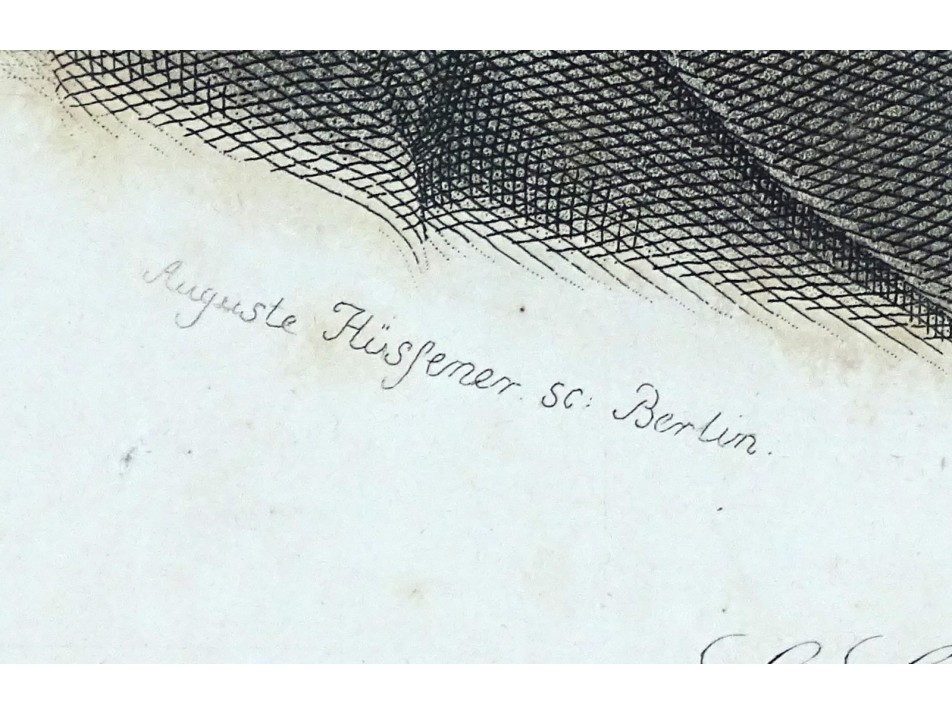 Auguste Hüssener. sc: Berlin.